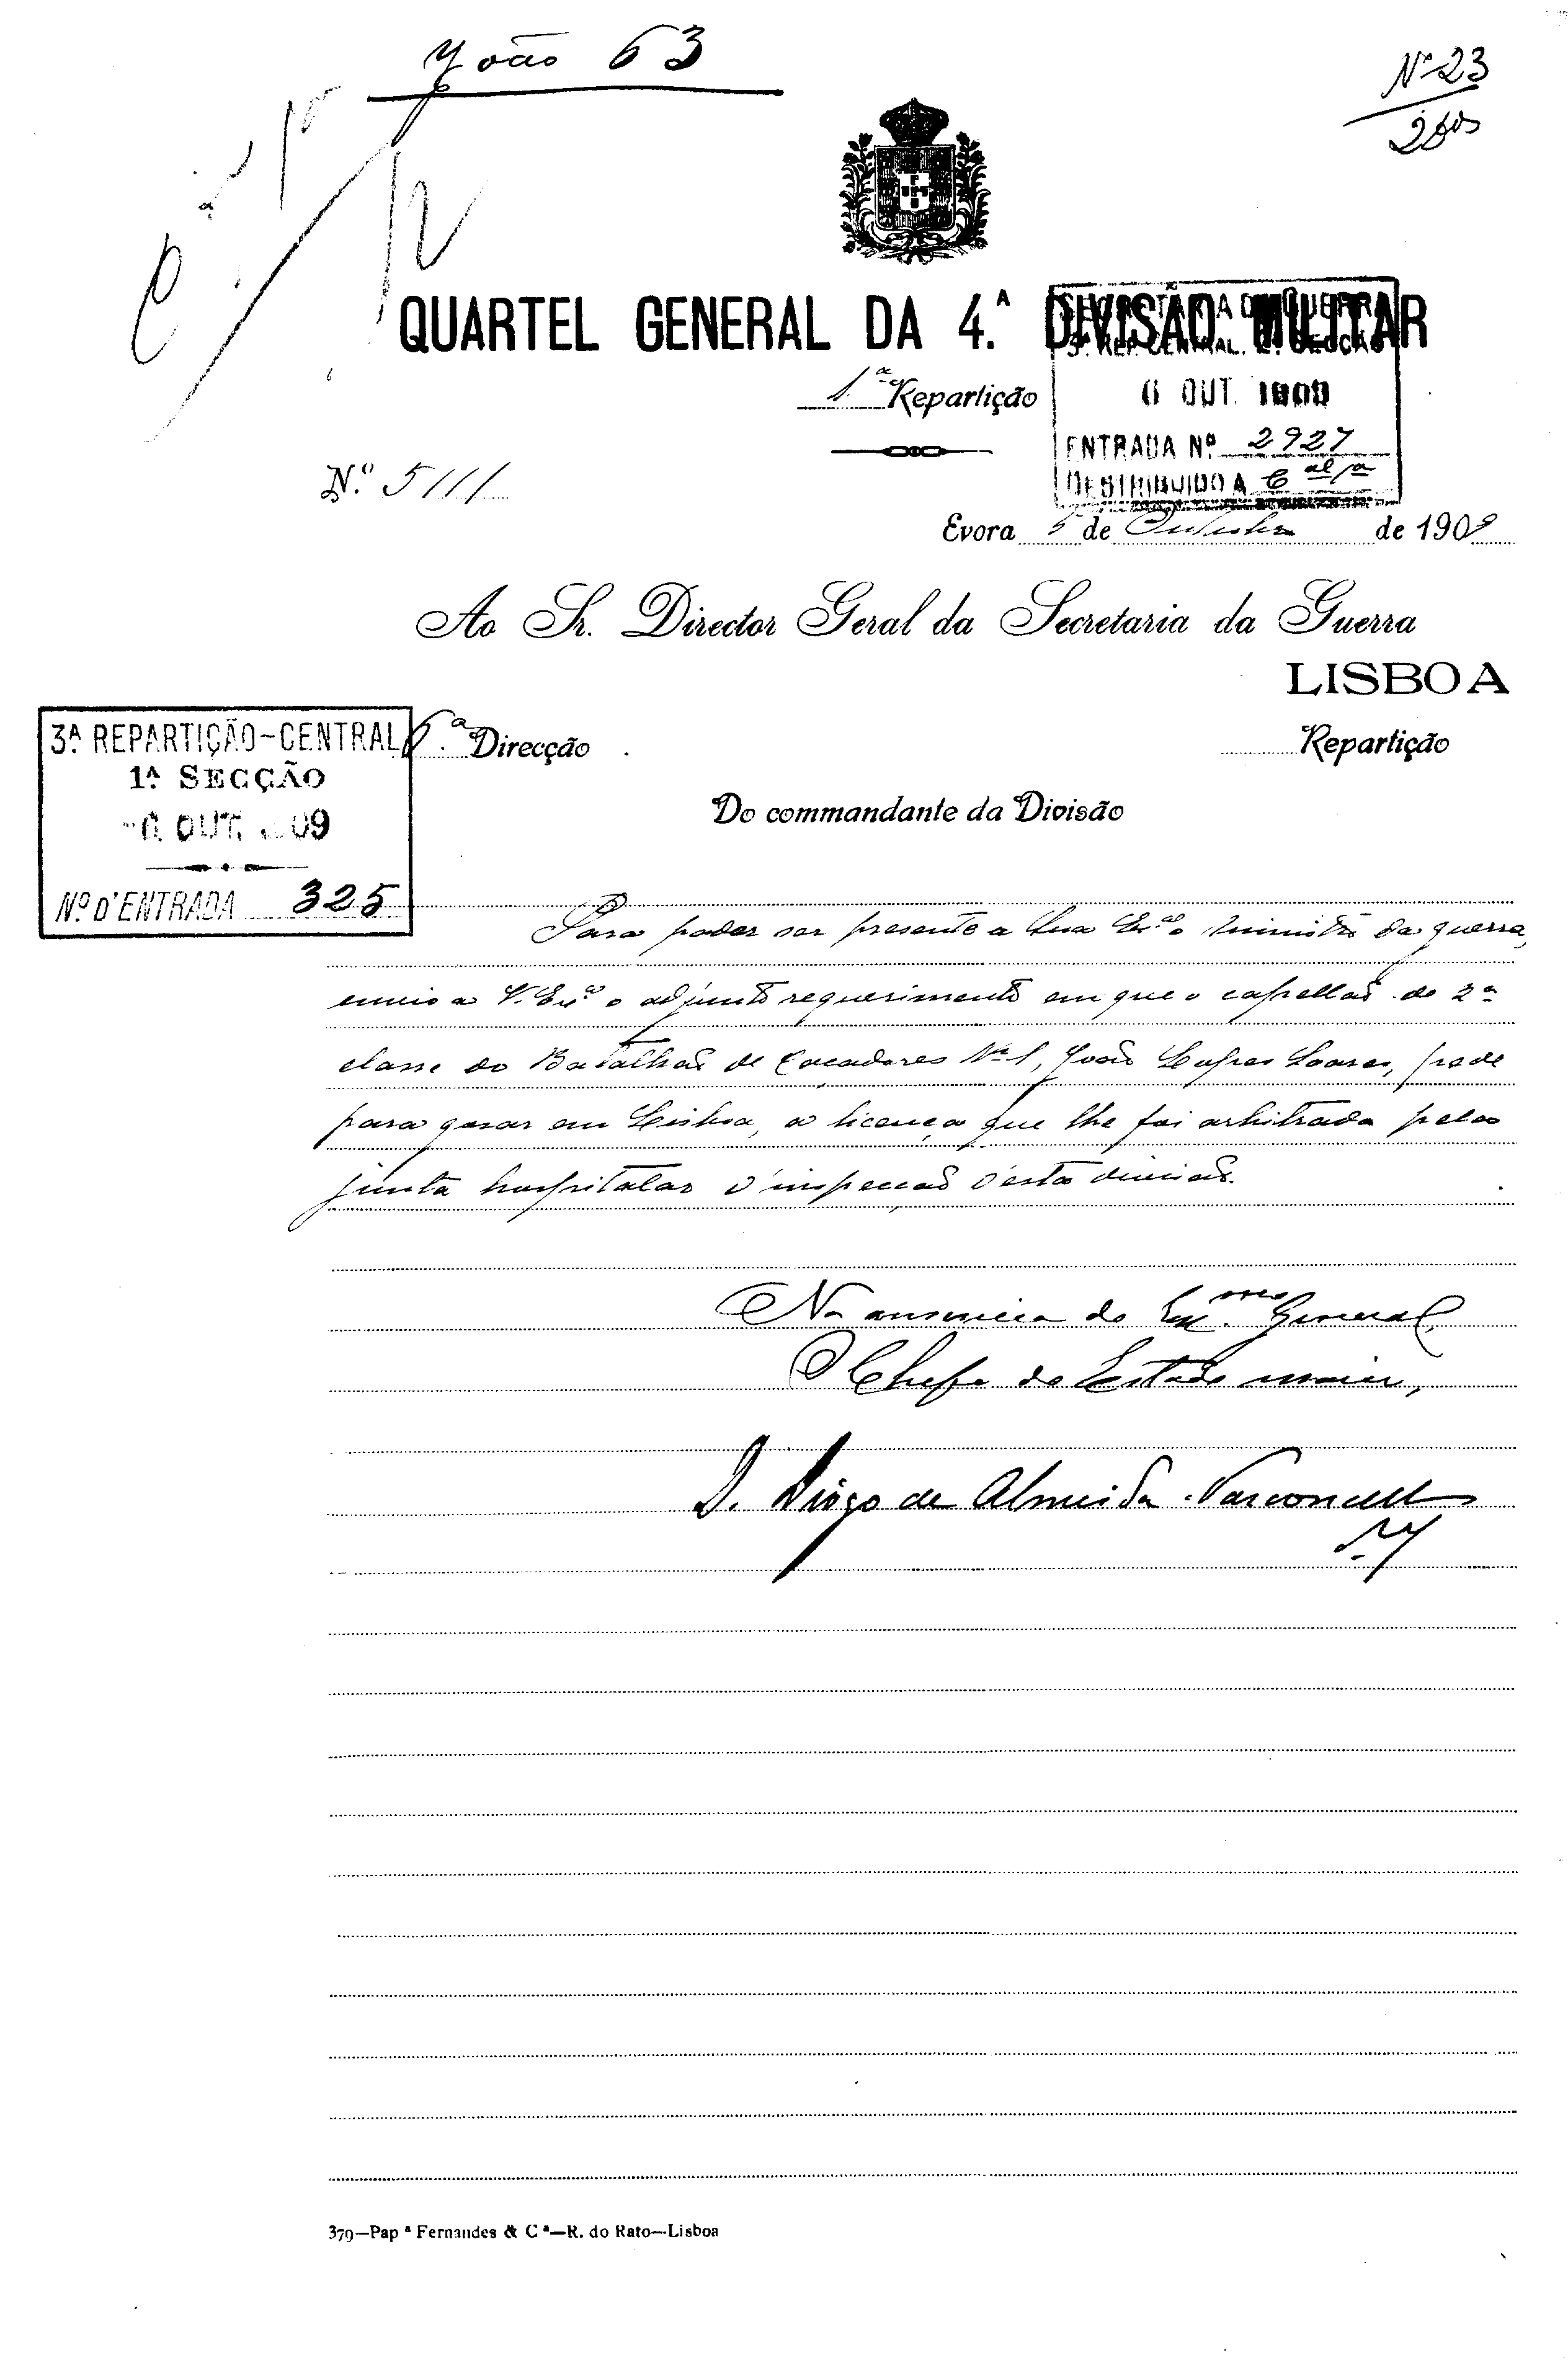 João 63
Nº 23
QUARTEL GENERAL DA 4.ª DIVISÃO MILITAR
1.ª Repartição
6 OUT. 1909
ENTRADA Nº 2927
DESTRIBUIDO A
N.º 5111
Evora 5 de Outubro de 1909
Ao Sr. Director Geral da Secretaria da Guerra
LISBOA
3.ª REPARTIÇÃO-CENTRAL
1.ª SECÇÃO
6 OUT. 909
Nº D'ENTRADA 325
6.ª Direcção
Repartição
Do commandante da Divisão
Para poder ser presente a Sua Ex.ª o ministro da guerra,
envio a V. Ex.ª o adjunto requerimento em que o capellão de 2ª
classe do Batalhão de Caçadores Nº 1, João Lopes Soares, pede
para gosar em Lisboa, a licença que lhe foi arbitrada pela
junta hospitalar d'inspecção d'esta divisão.
Na ausencia do Ex.mo General,
O Chefe do Estado maior,
D. Diogo de Almeida Vasconcellos
379—Pap.ª Fernandes & C.ª—R. do Rato—Lisboa